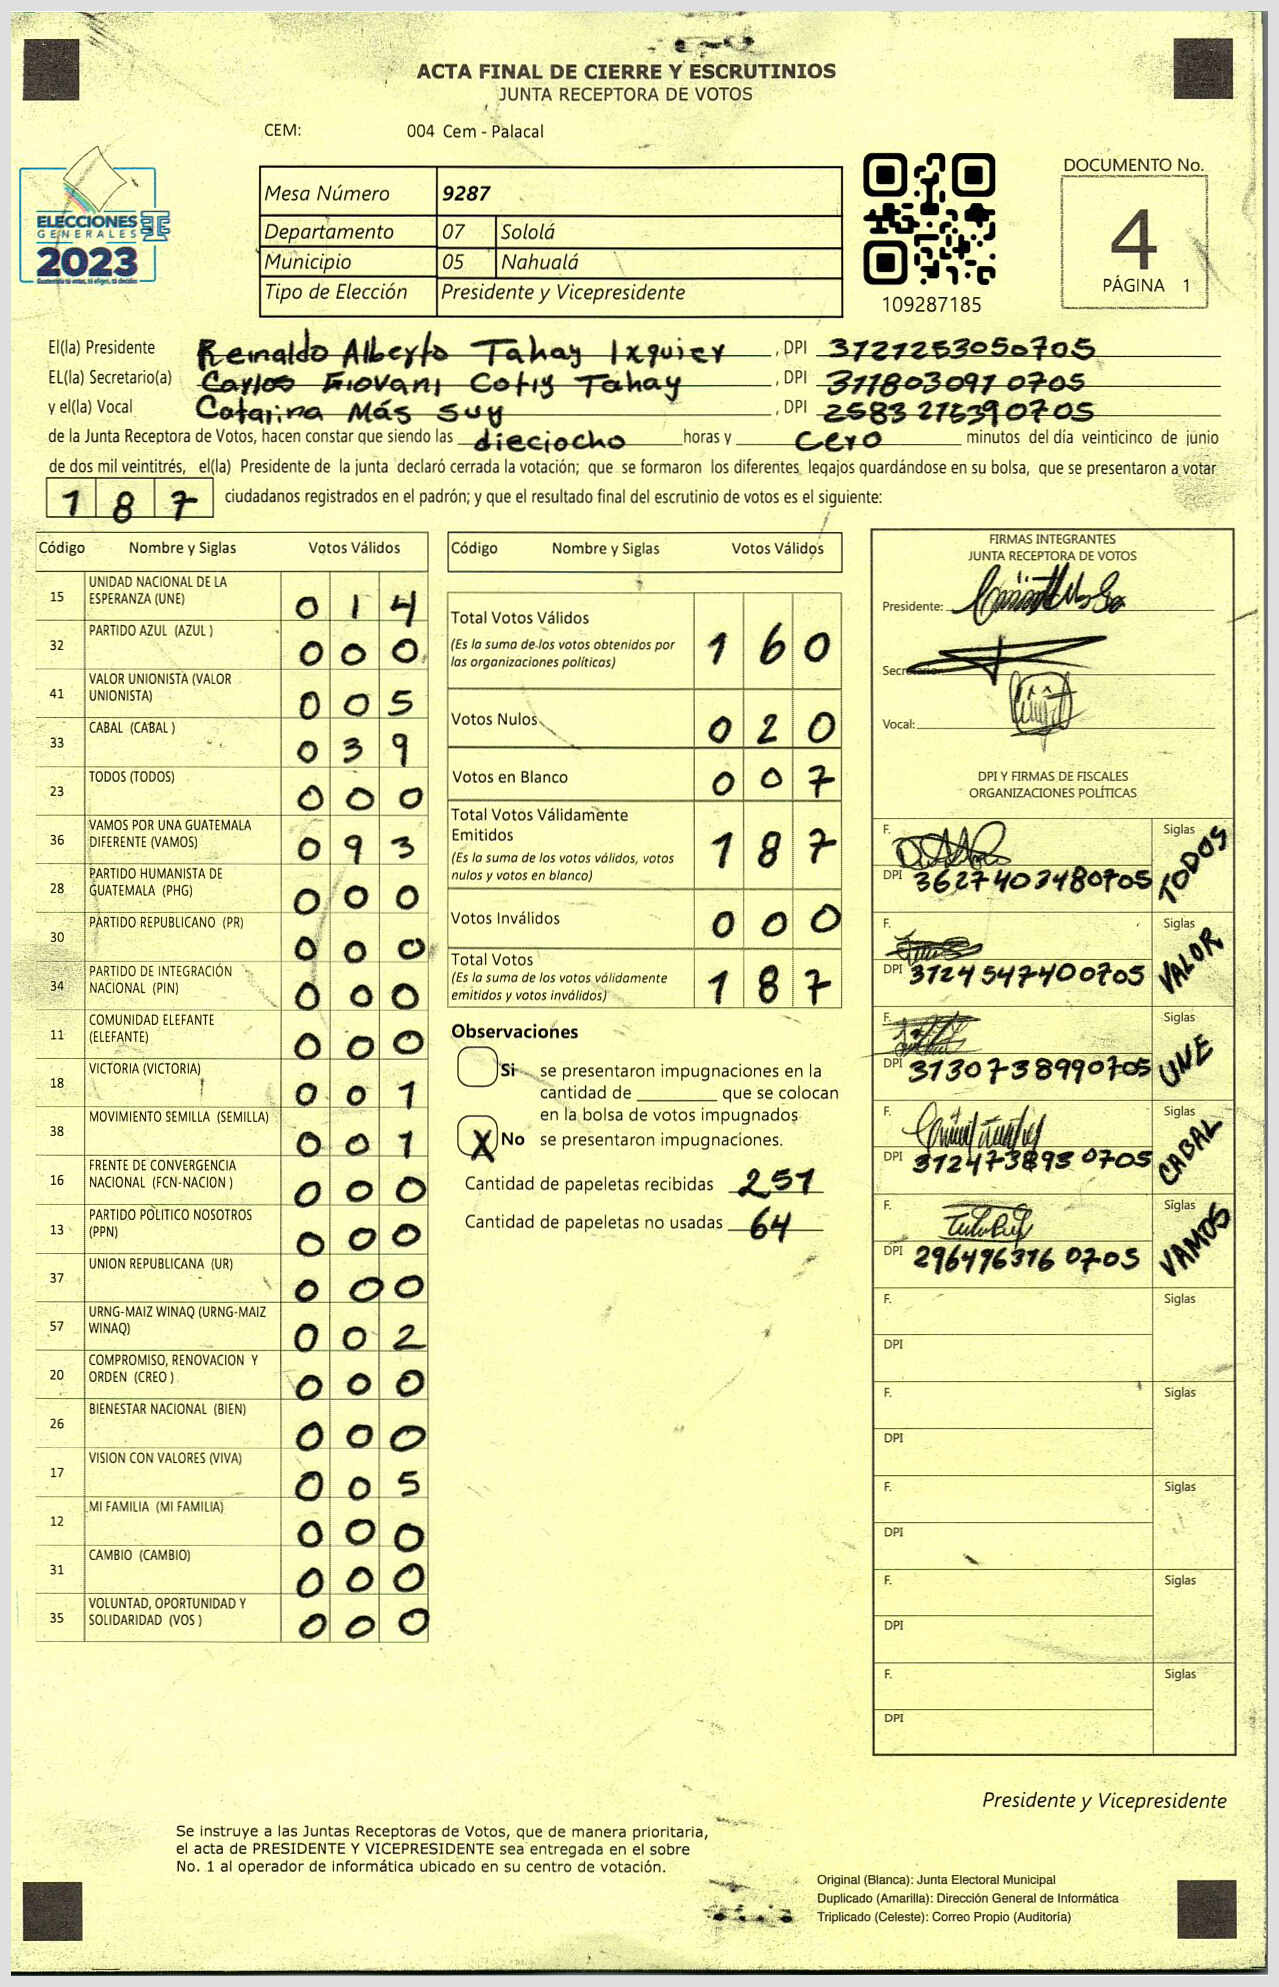 ACTA FINAL DE CIERRE Y ESCRUTINIOS
JUNTA RECEPTORA DE VOTOS
CEM: 004 Cem - Palacal
ELECCIONES
GENERALES
2023
Mesa Número 9287
Departamento 07 Sololá
Municipio 05 Nahualá
Tipo de Elección Presidente y Vicepresidente
109287185
DOCUMENTO No.
4
PÁGINA 1
El(la) Presidente Reinaldo Alberto Tahay Ixquier, DPI 3727253050705
EL(la) Secretario(a) Carlos Giovani Cotiy Tahay, DPI 3118030910705
y el(la) Vocal Catarina Más Suy, DPI 2583276390705
de la Junta Receptora de Votos, hacen constar que siendo las dieciocho horas y cero minutos del día veinticinco de junio
de dos mil veintitrés, el(la) Presidente de la junta declaró cerrada la votación; que se formaron los diferentes legajos guardándose en su bolsa, que se presentaron a votar
187 ciudadanos registrados en el padrón; y que el resultado final del escrutinio de votos es el siguiente:
Código Nombre y Siglas Votos Válidos
15 UNIDAD NACIONAL DE LA
ESPERANZA (UNE) 014
32 PARTIDO AZUL (AZUL ) 000
41 VALOR UNIONISTA (VALOR
UNIONISTA) 005
33 CABAL (CABAL ) 039
23 TODOS (TODOS) 000
36 VAMOS POR UNA GUATEMALA
DIFERENTE (VAMOS) 093
28 PARTIDO HUMANISTA DE
GUATEMALA (PHG) 000
30 PARTIDO REPUBLICANO (PR) 000
34 PARTIDO DE INTEGRACIÓN
NACIONAL (PIN) 000
11 COMUNIDAD ELEFANTE
(ELEFANTE) 000
18 VICTORIA (VICTORIA) 001
38 MOVIMIENTO SEMILLA (SEMILLA) 001
16 FRENTE DE CONVERGENCIA
NACIONAL (FCN-NACION ) 000
13 PARTIDO POLITICO NOSOTROS
(PPN) 000
37 UNION REPUBLICANA (UR) 000
57 URNG-MAIZ WINAQ (URNG-MAIZ
WINAQ) 002
20 COMPROMISO, RENOVACION Y
ORDEN (CREO ) 000
26 BIENESTAR NACIONAL (BIEN) 000
17 VISION CON VALORES (VIVA) 005
12 MI FAMILIA (MI FAMILIA) 000
31 CAMBIO (CAMBIO) 000
35 VOLUNTAD, OPORTUNIDAD Y
SOLIDARIDAD (VOS ) 000
Código Nombre y Siglas Votos Válidos
Total Votos Válidos 160
(Es la suma de los votos obtenidos por
las organizaciones políticas)
Votos Nulos 020
Votos en Blanco 007
Total Votos Válidamente
Emitidos 187
(Es la suma de los votos válidos, votos
nulos y votos en blanco)
Votos Inválidos 000
Total Votos 187
(Es la suma de los votos válidamente
emitidos y votos inválidos)
Observaciones
Si se presentaron impugnaciones en la
cantidad de ________ que se colocan
en la bolsa de votos impugnados
X No se presentaron impugnaciones.
Cantidad de papeletas recibidas 251
Cantidad de papeletas no usadas 64
FIRMAS INTEGRANTES
JUNTA RECEPTORA DE VOTOS
Presidente:
Secretario:
Vocal:
DPI Y FIRMAS DE FISCALES
ORGANIZACIONES POLÍTICAS
F. Siglas TODOS
DPI 3627403480705
F. Siglas VALOR
DPI 3124547400705
F. Siglas UNE
DPI 3130738990705
F. Siglas CABAL
DPI 3124738930705
F. Siglas VAMOS
DPI 2964963160705
F. Siglas
DPI
F. Siglas
DPI
F. Siglas
DPI
F. Siglas
DPI
F. Siglas
DPI
Presidente y Vicepresidente
Se instruye a las Juntas Receptoras de Votos, que de manera prioritaria,
el acta de PRESIDENTE Y VICEPRESIDENTE sea entregada en el sobre
No. 1 al operador de informática ubicado en su centro de votación.
Original (Blanca): Junta Electoral Municipal
Duplicado (Amarilla): Dirección General de Informática
Triplicado (Celeste): Correo Propio (Auditoría)